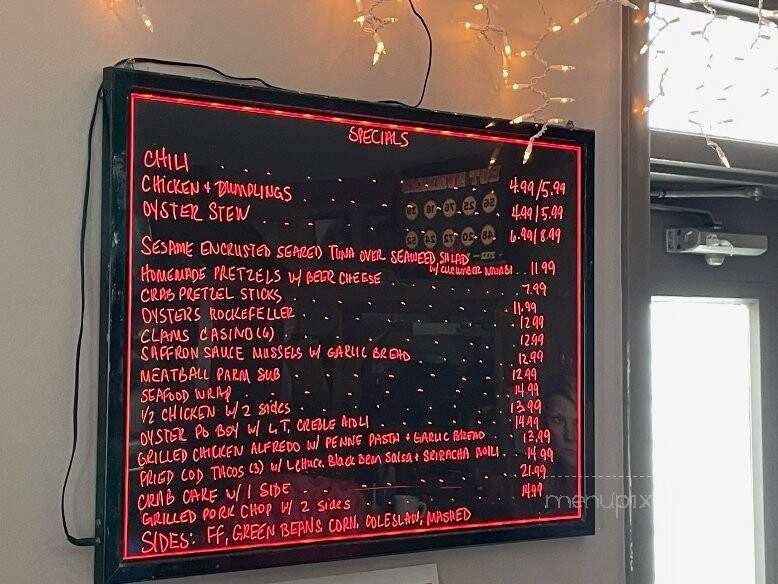 SPECIALS
CHILI . . . . . . . 4.99/5.99
CHICKEN + DUMPLINGS . . . . 4.99/5.99
OYSTER STEW . . . . . 6.99/8.99
SESAME ENCRUSTED SEARED TUNA OVER SEAWEED SALAD
W/ CUCUMBER WASABI . . 11.99
HOMEMADE PRETZELS W/ BEER CHEESE . . . . 7.99
CRAB PRETZEL STICKS . . . . . 11.99
OYSTERS ROCKEFELLER . . . . . 12.99
CLAMS CASINO (6) . . . . . 12.99
SAFFRON SAUCE MUSSELS W/ GARLIC BREAD . . . 12.99
MEATBALL PARM SUB . . . . . 12.99
SEAFOOD WRAP . . . . . . 14.99
1/2 CHICKEN W/ 2 sides . . . . . 13.99
OYSTER PO BOY W/ L, T, CREOLE AIOLI . . . . 14.99
GRILLED CHICKEN ALFREDO W/ PENNE PASTA + GARLIC BREAD . 13.99
FRIED COD TACOS (3) W/ Lettuce, Black Bean Salsa + SRIRACHA AIOLI . . 14.99
CRAB CAKE W/ 1 SIDE . . . . . 21.99
GRILLED PORK CHOP W/ 2 sides . . . . 14.99
SIDES: FF, GREEN BEANS, CORN, COLESLAW, MASHED
menupix